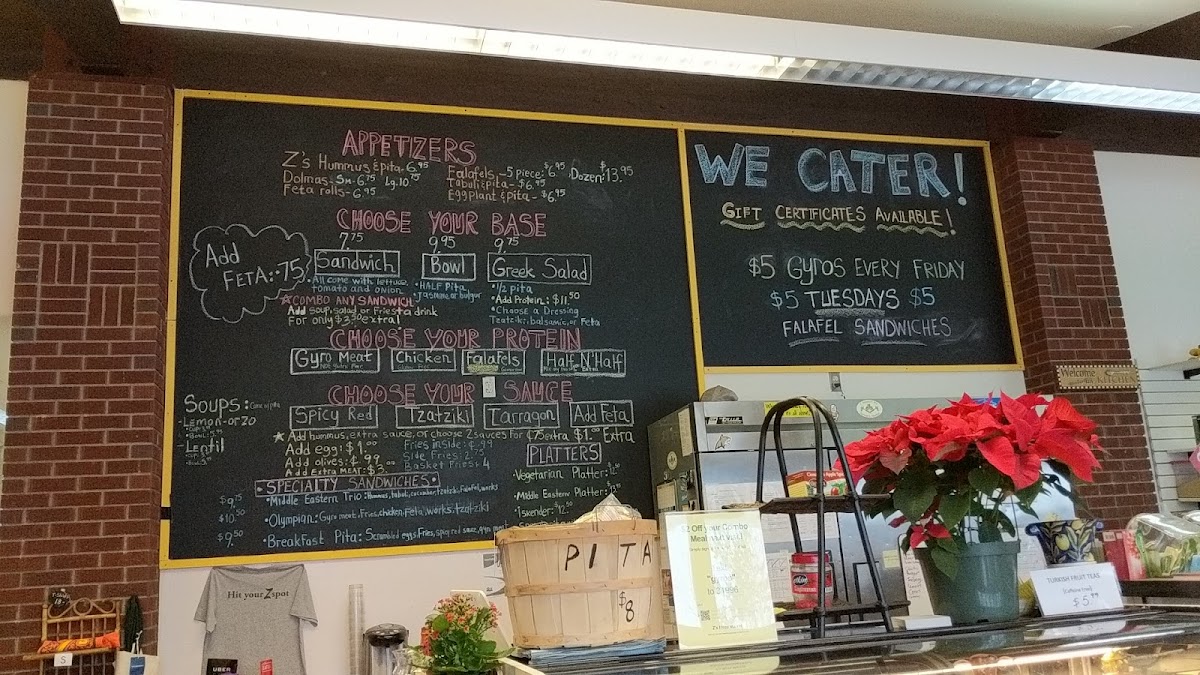 APPETIZERS
Z's Hummus & pita - 6.95
Dolmas - Sm - 6.75 Lg. 10.75
Feta rolls - 6.95
Falafels - 5 piece: $6.95, Dozen: $13.95
Tabuli & pita - $6.95
Eggplant & pita - $6.95
CHOOSE YOUR BASE
7.75 9.95 9.75
Sandwich Bowl Greek Salad
Add
FETA: .75
• All come with lettuce,
tomato and onion
☆COMBO ANY SANDWICH
Add soup, salad or fries + a drink
For only $3.50 extra!
• HALF Pita,
Jasmine, or bulgur
• ½ pita
• Add Protein: $11.50
• Choose a Dressing
Tzatziki, balsamic, or Feta
CHOOSE YOUR PROTEIN
Gyro Meat Chicken Falafels Half N' Half
CHOOSE YOUR SAUCE
Spicy Red Tzatziki Tarragon Add Feta
☆ Add hummus, extra sauce, or choose 2 sauces for ¢75 extra $1.00 Extra
Add egg: $1.00
Add olives: ¢.99
Add Extra MEAT: $3.00
Fries inside: ¢.99
Side Fries: 2.75
Basket Fries: 4
SOUPS:
- Lemon-orzo
- Lentil
PLATTERS
• Vegetarian Platter:
• Middle Eastern Platter:
• Iskender: $12.50
• SPECIALTY SANDWICHES •
$9.75 • Middle Eastern Trio: Hummus, tabuli, cucumber, tzatziki, Falafel, works
$10.50 • Olympian: Gyro meat, Fries, chicken, Feta, works, tzatziki
$9.50 • Breakfast Pita: Scrambled eggs, Fries, spicy red sauce, gyro meat
WE CATER!
GIFT CERTIFICATES AVAILABLE!
$5 Gyros EVERY FRIDAY
$5 TUESDAYS $5
FALAFEL SANDWICHES
Welcome
KITCHEN
Hit your Z spot
UBER
S
PITA
$8
$2 Off your Combo
"gyro"
to 24996
TURKISH FRUIT TEAS
(Caffeine Free)
$5.99